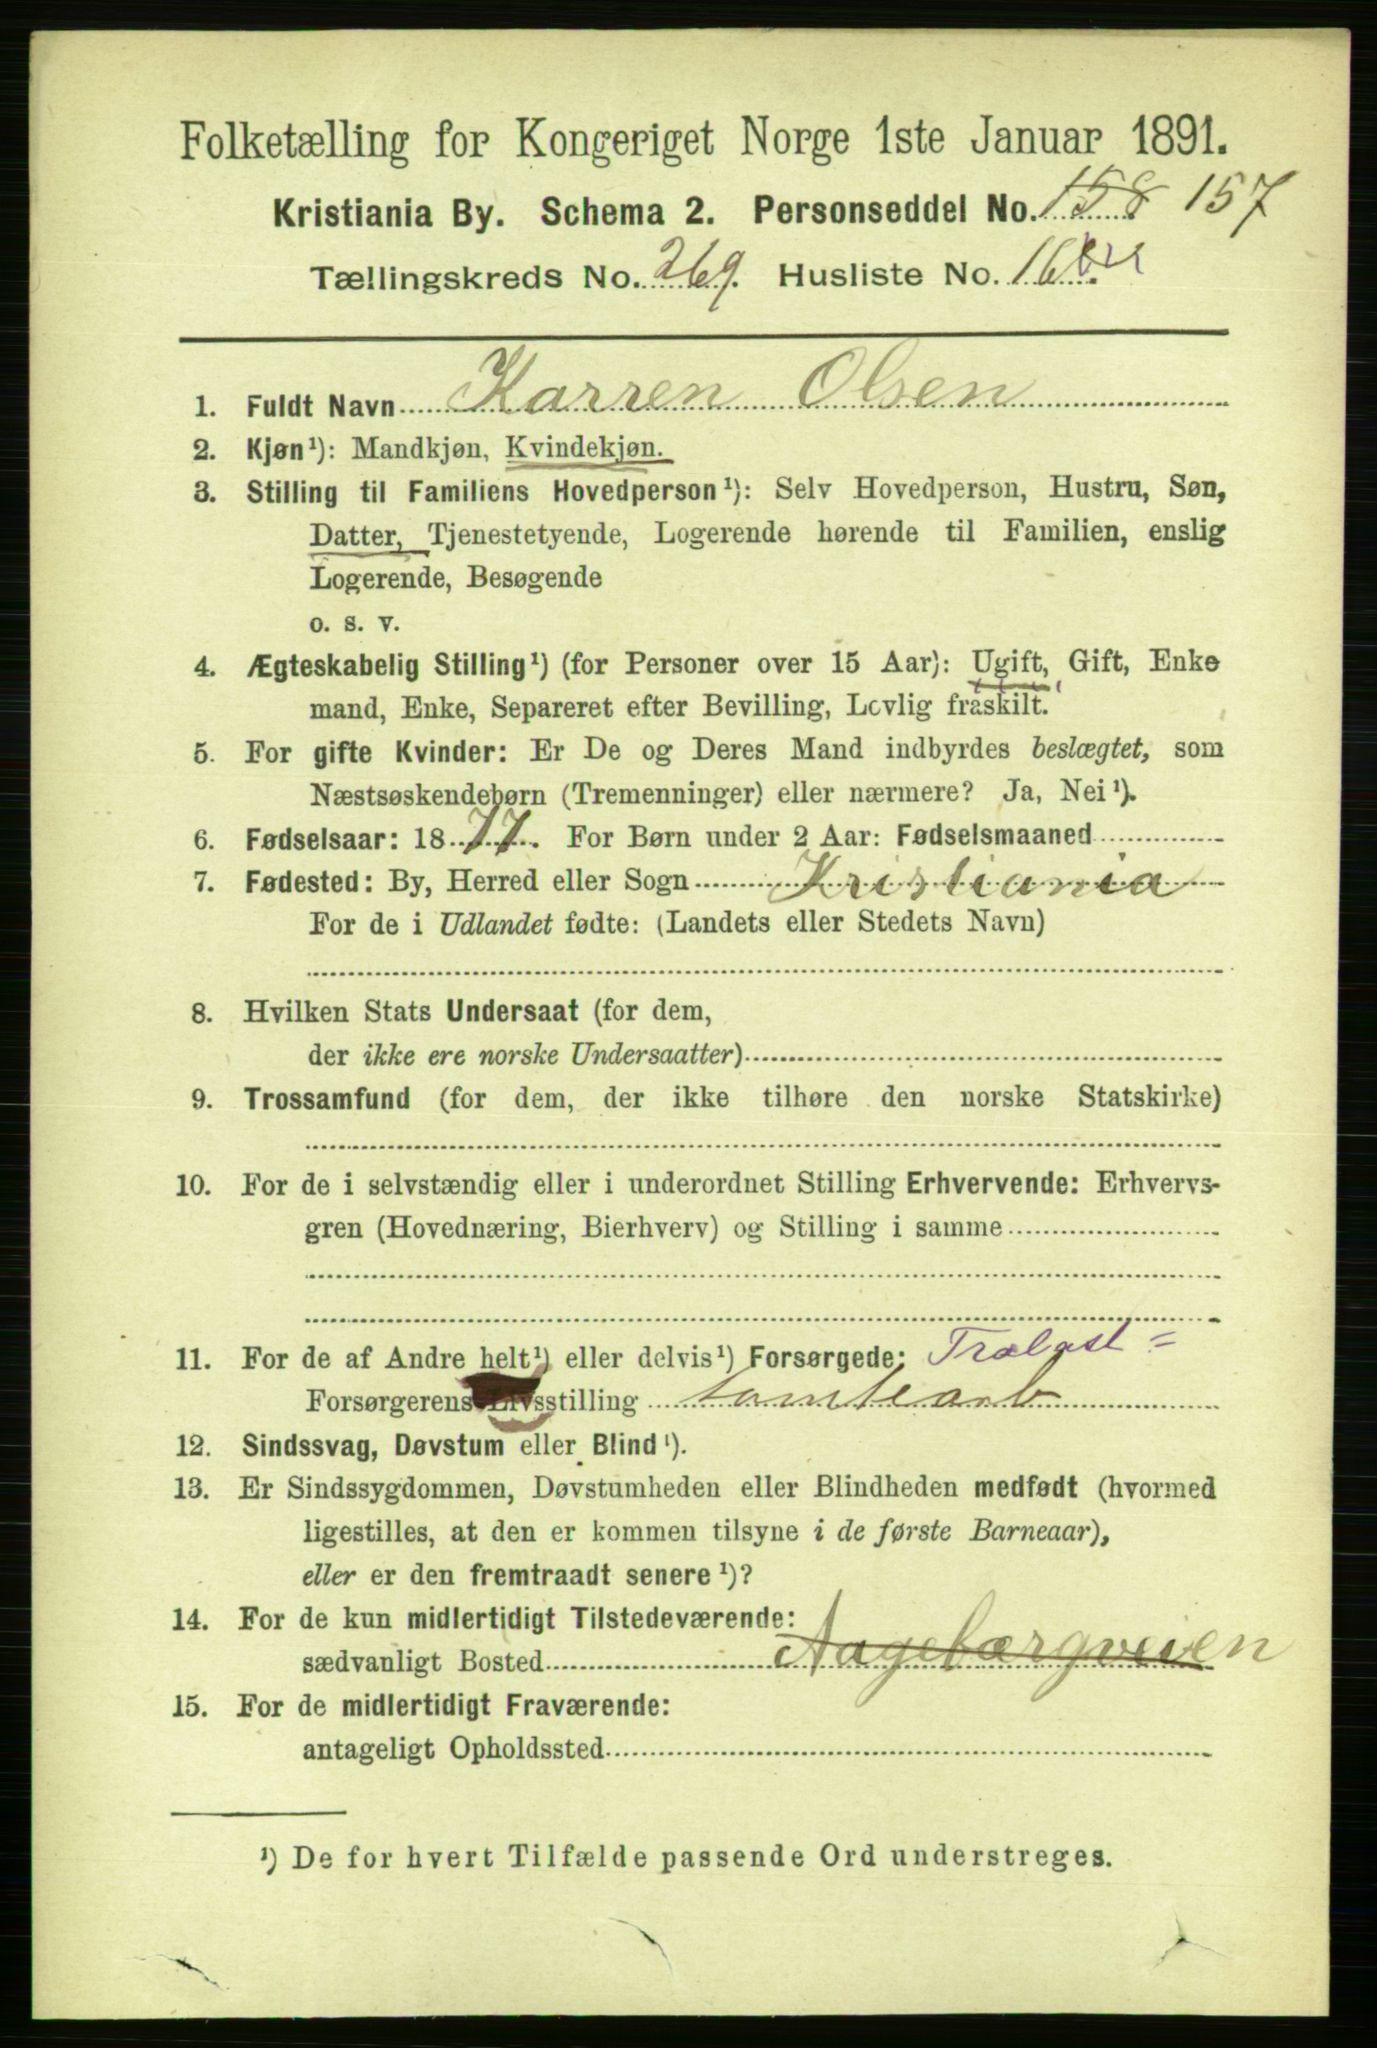 Folketælling for Kongeriget Norge 1ste Januar 1891.
Kristiania By. Schema 2. Personseddel No. 158 157
Tællingskreds No. 269. Husliste No.
1. Fuldt Navn Karren Olsen
2. Kjøn¹): Mandkjøn, Kvindekjøn.
3. Stilling til Familiens Hovedperson¹): Selv Hovedperson, Hustru, Søn,
Datter, Tjenestetyende, Logerende hørende til Familien, enslig
Logerende, Besøgende
o. s. v.
4. Ægteskabelig Stilling¹) (for Personer over 15 Aar): Ugift, Gift, Enke
mand, Enke, Separeret efter Bevilling, Lovlig fraskilt.
5. For gifte Kvinder: Er De og Deres Mand indbyrdes beslægtet, som
Næstsøskendebørn (Tremenninger) eller nærmere? Ja, Nei¹).
6. Fødselsaar: 1877. For Børn under 2 Aar: Fødselsmaaned
7. Fødested: By, Herred eller Sogn Kristiania
For de i Udlandet fødte: (Landets eller Stedets Navn)
8. Hvilken Stats Undersaat (for dem,
der ikke ere norske Undersaatter)
9. Trossamfund (for dem, der ikke tilhøre den norske Statskirke)
10. For de i selvstændig eller i underordnet Stilling Erhvervende: Erhvervs-
gren (Hovednæring, Bierhverv) og Stilling i samme
11. For de af Andre helt¹) eller delvis¹) Forsørgede: Trælast=
Forsørgerens Livsstilling tomtearb
12. Sindssvag, Døvstum eller Blind¹).
13. Er Sindssygdommen, Døvstumheden eller Blindheden medfødt (hvormed
ligestilles, at den er kommen tilsyne i de første Barneaar),
eller er den fremtraadt senere¹)?
14. For de kun midlertidigt Tilstedeværende:
sædvanligt Bosted Aagebærgveien
15. For de midlertidigt Fraværende:
antageligt Opholdssted
¹) De for hvert Tilfælde passende Ord understreges.